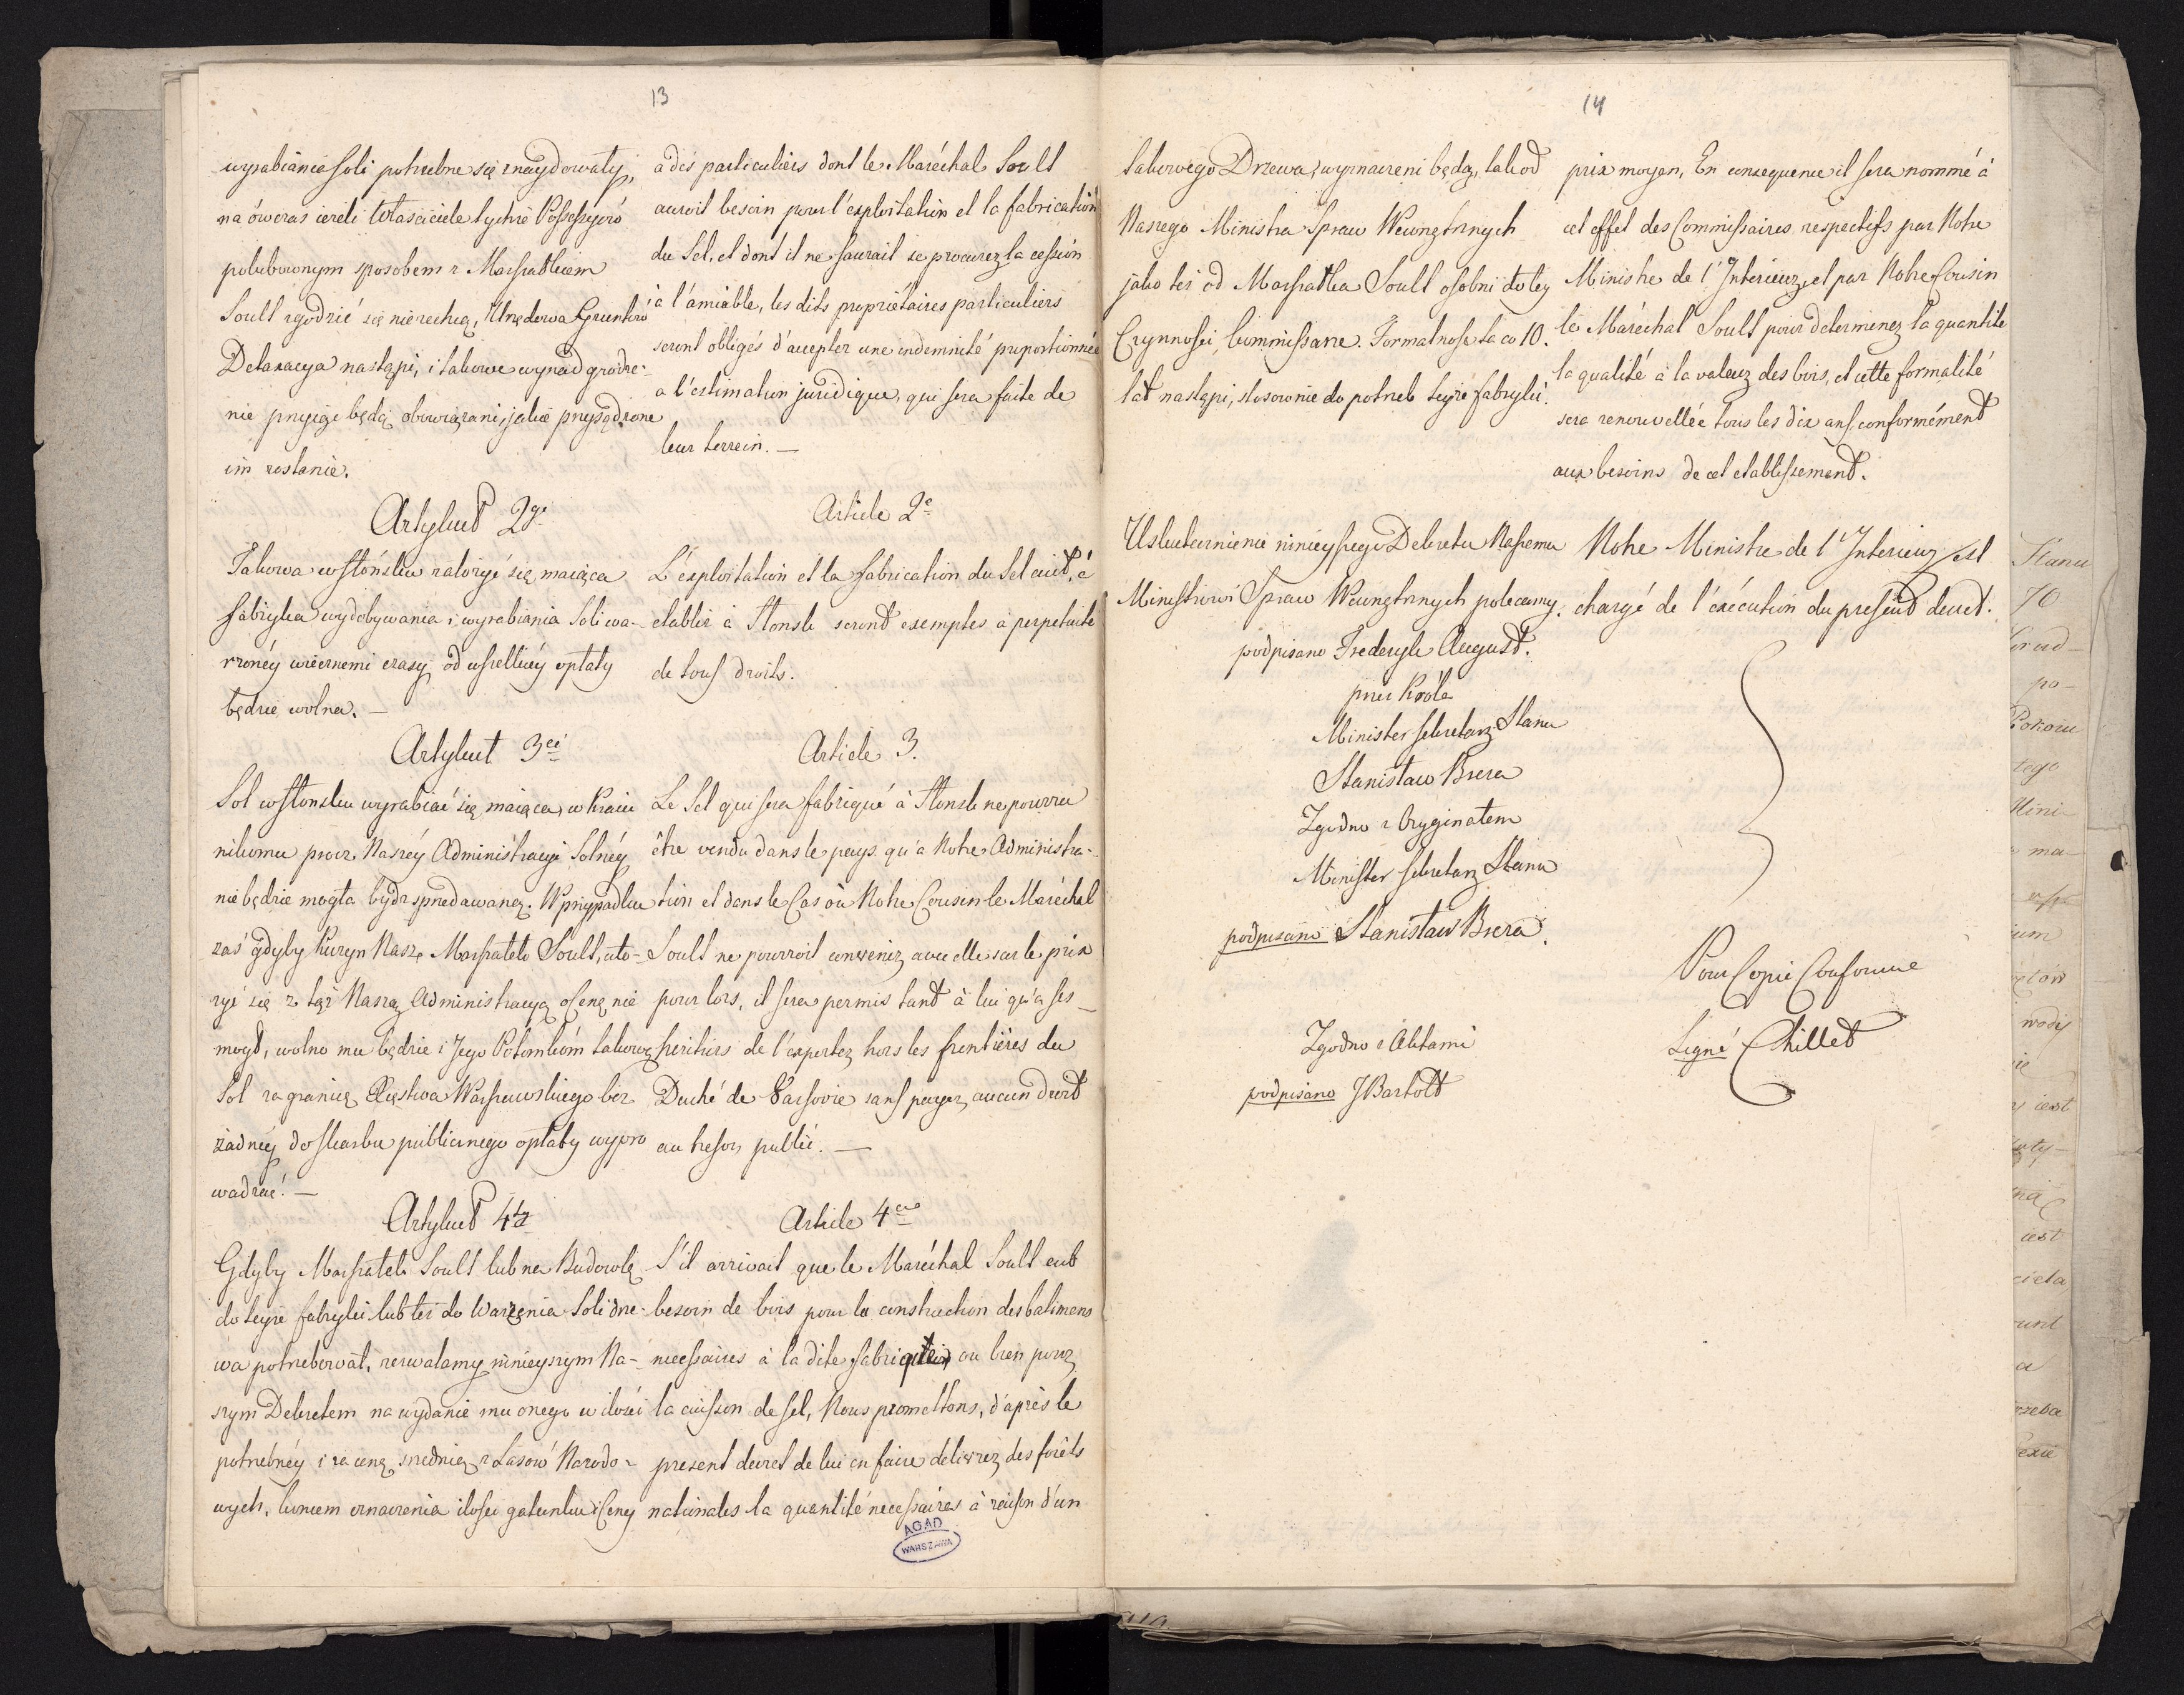 13
wyrabianie soli potrzebne się znaydowały,
na ówczas ieżeli Właściciele tychże Possessyów
polubownym sposobem z Marszałkiem
Soult zgodzić się niezechcą, Urzędowa Gruntów
Detaxacya nastąpi, i takowe wynadgrodze-
nie przyiąć będą obowiązani, jakie przysądzone
im zostanie.
Artykuł 2gi
Takowa w Słońsku założyć się maiąca
fabryka wydobywania i wyrabiania Soli wa-
rzonéy wiecznemi czasy od wszelkiéy opłaty
będzie wolna. —
Artykuł 3ci
Sol w Słonsku wyrabiać się maiąca, w Kraiu
nikomu procz Naszéy Administracyi Solnéy
nie będzie mogła bydz sprzedawaną. W przypadku
zaś gdyby Kuzyn Nasz Marszałek Soult, uło-
żyć się z tąż Naszą Administracyą o Cenę nie
mógł, wolno mu będzie i Jego Potomkóm takową
Sol za granicę Xięstwa Warszawskiego bez
żadnéy do skarbu publicznego opłaty wypro
wadzać. —
Artykuł 4ty
Gdyby Marszałek Soult lub na Budowlę
do teyże fabryki lub też do Warzenia Soli drze-
wa potrzebował, zezwalamy ninieyszym Na-
szym Dekretem na wydanie mu onego w ilości
potrzebnéy i za cenę srednią z Lasów Narodo-
wych, koncem oznaczenia ilosci gatunku i Ceny
a des particuliers dont le Maréchal Soult
auroit besoin pour l'exploitation et la fabrication
du Sel, et dont il ne saurait se procurer la cession
à l'amiable, les dits propriétaires particuliers
seront obligés d'accepter une indemnité proportionnée
a l'estimation juridique, qui sera faite de
leur terrein. —
Article 2e
L'exploitation et la fabrication du Sel cuit, à
etablir à Slonsk seront exemptes a perpetuité
de tous droits.
Article 3.
Le Sel qui sera fabriqué à Slonsk ne pourra
être vendu dans le pays qu'a Notre Administra-
tion et dans le Cas où Notre Cousin le Maréchal
Soult ne pourroit convenir avec elle sur le prix
pour lors, il sera permis tant à lui qu'a ses
heritiers de l'exporter hors les frontières du
Duché de Varsovie sans payer aucun droit
au tresor public. —
Article 4e
S'il arrivait que le Maréchal Soult eut
besoin de bois pour la construction des batimens
necessaires à la dite fabrique ou bien pour
la cuisson de sel, Nous promettons, d'après le
present decret de lui en faire délivrer des forêts
nationales la quantité necessaires à raison d'un
AGAD
WARSZAWA
14
takowego Drzewa, wyznaczeni będą, tak od
Naszego Ministra Spraw Wewnętrznych
jako też od Marszałka Soult osobni do tey
Czynnosci Kommissarze. Formalnosc ta co 10.
lat nastąpi, stosownie do potrzeb teyże fabryki.
Uskutecznienie ninieyszego Dekretu Naszemu
Ministrowi Spraw Wewnętrznych polecamy.
podpisano Frederyk August.
przez Króla
Minister Sekretarz Stanu
Stanisław Breza
Zgodno z Oryginałem
Minister Sekretarz Stanu
podpisano Stanisław Breza.
Zgodno z Aktami
podpisano J Bartolt
prix moyen, En consequence il sera nommé à
cet effet des Commissaires respectifs par Notre
Ministre de l'Interieur, et par Notre Cousin
le Maréchal Soult pour determiner la quantité
la qualité à la valeur des bois, et cette formalité
sera renouvellée tous les dix ans, conformément
aux besoins de cet etablissement.
Notre Ministre de l'Interieur est
chargé de l'exécution du present decret.
Pour Copie Conforme
Signé Chillet
Stanu
70
po-
tego
Mini-
ma-
iest
iest